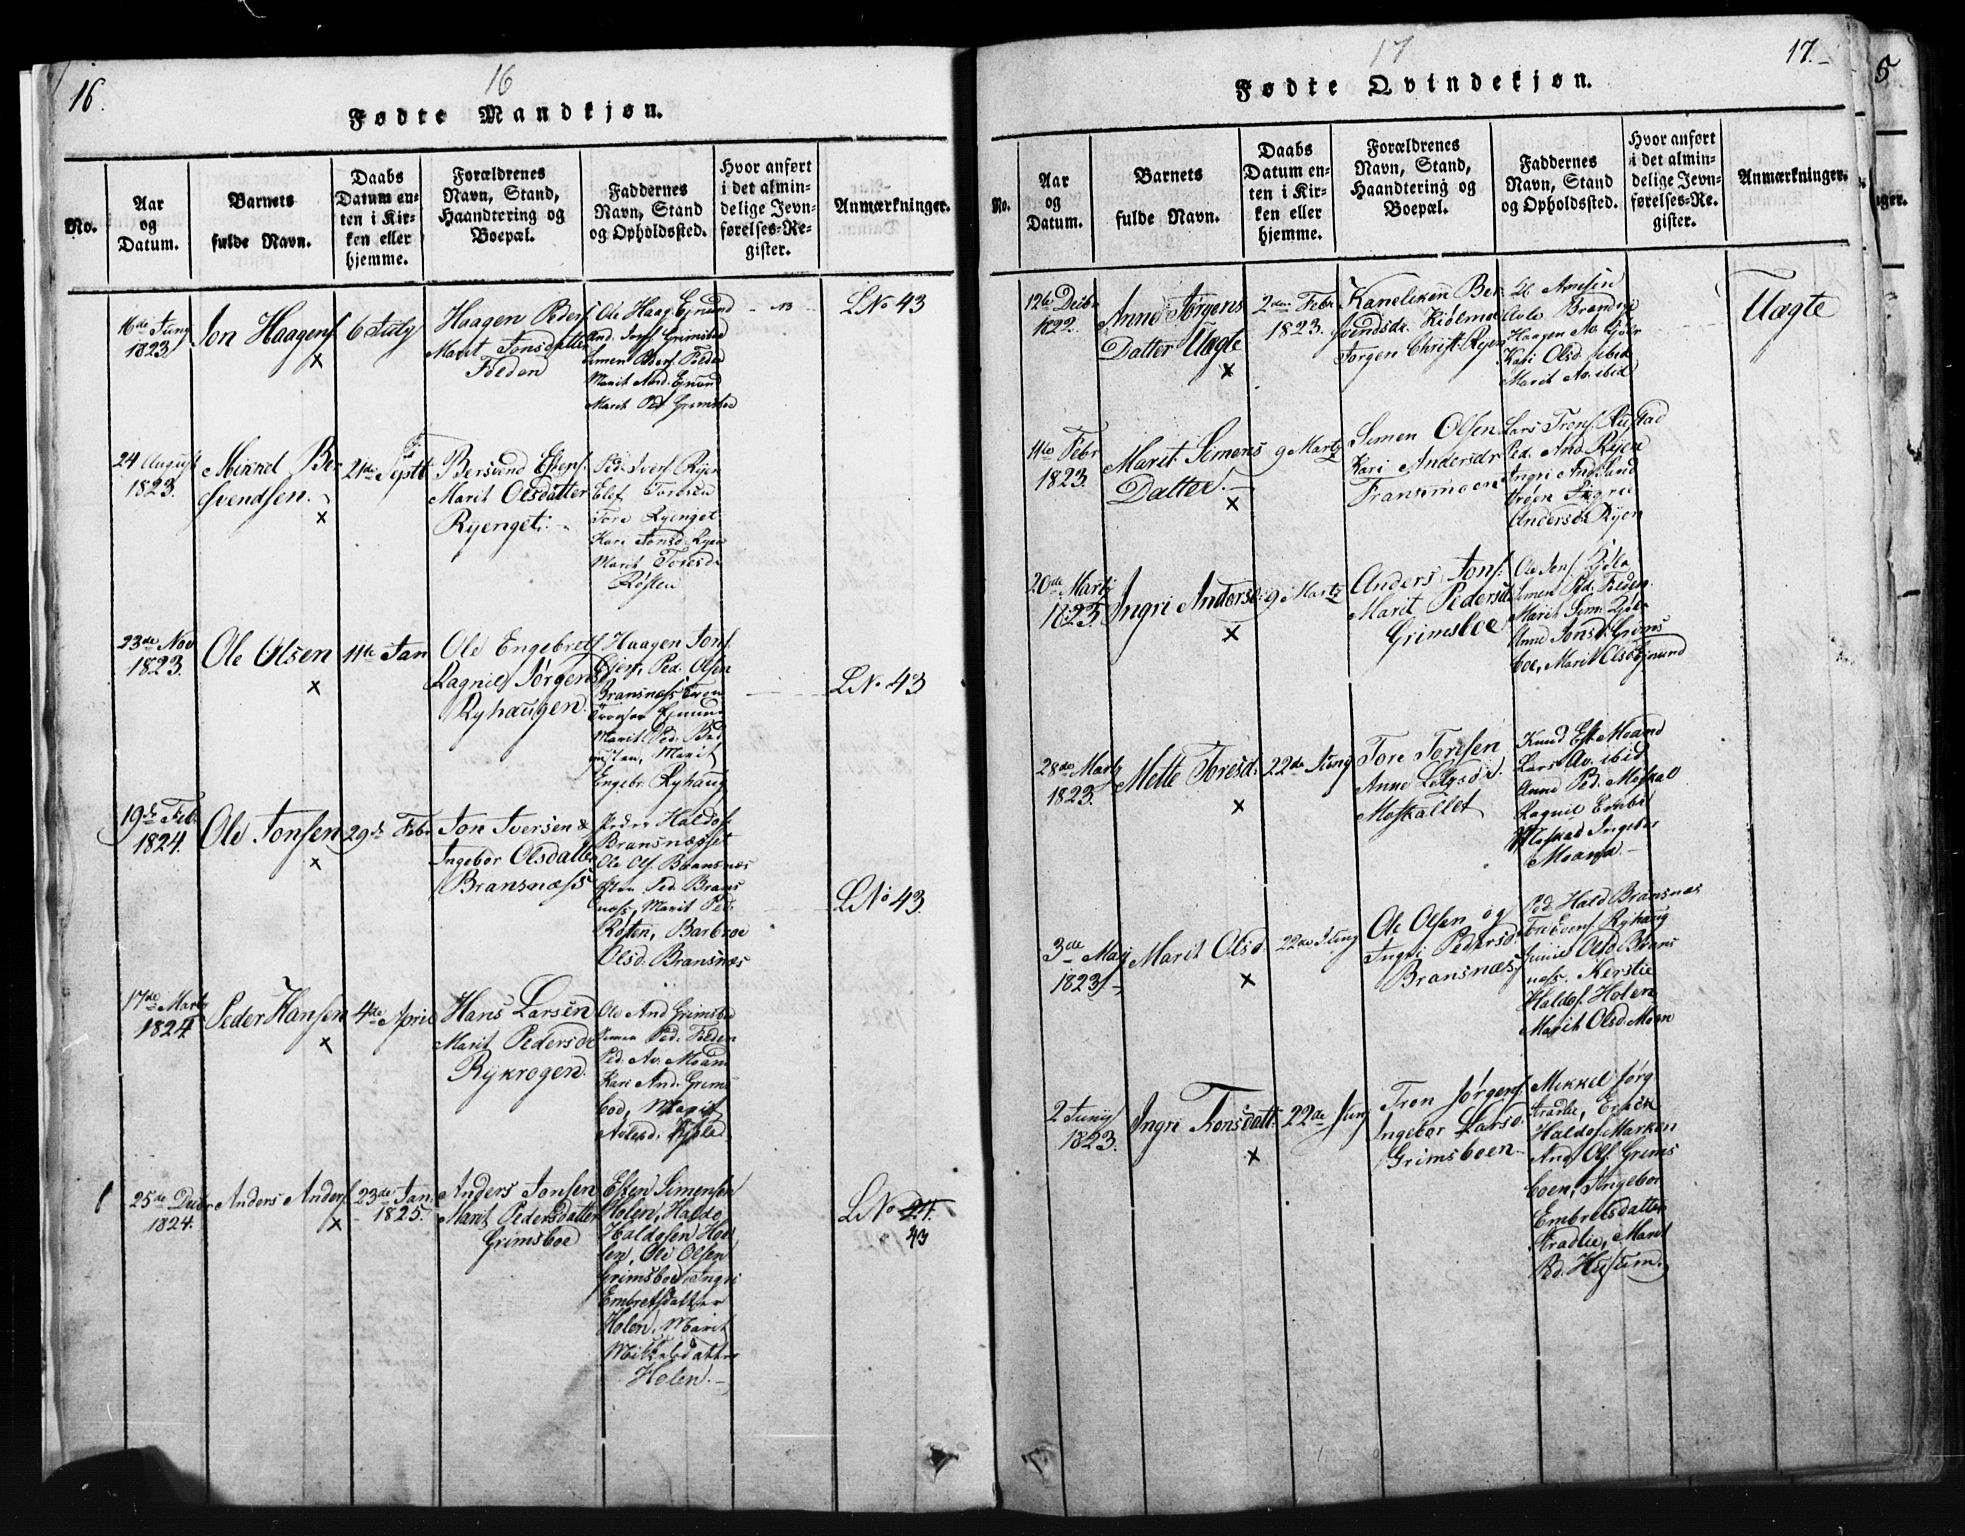 16.
16
Fødte Mandkjøn.
No.
Aar
og
Datum.
Barnets
fulde Navn.
Daabs
Datum en-
ten i Kir-
ken eller
hjemme.
Forældrenes
Navn, Stand,
Haandtering og
Boepæl.
Faddernes
Navn, Stand
og Opholdssted.
Hvor anført
i det almin-
delige Jevn-
førelses-Re-
gister.
Anmærkninger.
16de Juny
1823
Jon Haagens
x
6 July
Haagen Peders
Marit Jonsdatter
Folden
Ole Haag. Ejnund
And. Jons. Grimsboe
Simen Peders. Folden
Marit And. Ejnund
Marit Ped Grimsboe
LNo 43
24 August
1823.
Mikkel Be-
svendsen.
x
21de Septb
Bersvend Estens.
Marit Olsdatter
Ryenget.
Ped. Ivers. Ryen
Elef Toresen
Tore Ryenget
Kari Jonsd. Ryen
Marit Toresdr
Røsten
23de Nov
1823.
Ole Olsen
x
11te Jan
Ole Engebrets
Ragnil Jørgens
Ryhaugen.
Haagen Jons.
Ped. Olsen
Bransnæss Tron
Tronsen Ejnund
Marit Ped.
Marit
Engebr. Ryhaug
LNo 43
19de Feb.
1824.
Ole Jonsen
x
29de Febr
Jon Iversen &
Ingebor Olsdatter
Bransnæss
Peder Haldos.
Bransnæsset
Ole Ols. Bransnæs
Esten Ped. Brans
næss, Marit Ped.
Røsten, Barbroe
Olsd. Bransnæs
LNo 43.
17de Martz
1824
Peder Hansen
x
4de April
Hans Larsen
Marit Pedersdr
Rykrogen.
Ole And Grimsboe
Simen Ped. Folden
Ped. Av. Moan
Kari And. Grims
boe, Marit
LNo 24.
43
1
25de Decbr
1824.
Anders Anders.
x
23de Jan.
1825.
Anders Jonsen
Marit Pedersdatter
Grimsboe
Esten Simensen
Holen, Haldo
Haldosen Ho-
len, Ole Olsen
Grimsboe, Ingri
Embretsdatter
Holen, Marit
Mikkelsdatter
Holen.
17
17.
Fødte Qvindekjøn.
No.
Aar
og
Datum.
Barnets
fulde Navn.
Daabs
Datum en-
ten i Kir-
ken eller
hjemme.
Forældrenes
Navn, Stand,
Haandtering og
Boepæl.
Faddernes
Navn, Stand
og Opholdssted.
Hvor anført
i det almin-
delige Jevn-
førelses-Re-
gister.
Anmærkninger.
12te Decbr
1822.
Anne Jørgens
Datter Uægte
x
2den Febr
1823.
Ber
svendsdr.
Jørgen Christ. Ryen
Haagen
Kari Olsd. ibid
Marit Av. ibid
Uægte
4de Febr
1823.
Marit Simens
Datter.
x
9 Martz
Simen Olsen
Kari Andersdr
Fransmoen
Lars Trons. Rustad
Ped. And Ryen
Ingri And.
Andersdr Ryen
20de Martz
1823.
Ingri Andersd.
x
9 Martz
Anders Jons.
Marit Pedersdr
Grimsboe
Ole Jons.
Simen Ped. Folden.
Marit Sim.
Anne Jonsd. Grims
boe, Marit Olsd Ejnund
28de Martz
1823.
Mette Toresd.
x
22de Juny
Tore Toresen
Anne
Moskallet
Knud Est. Moand
Lars Av. ibid
Anne Ped. Moskal
Ragnil
Moskal Ingebor
Moand.
3de May
1823
Marit Olsd.
x
22de Juny
Ole Olsen og
Ingri Pedersd.
Bransnæs
Ped. Hald Bransnæs
Tore Evens. Ryhaug
Olsd. Brans
næss. Kerstie
Haldos. Holen
Marit Olsd. Moen
2 Juny
1823.
Ingri Tronsdatt.
x
22de Juny
Tron Jørgens
Ingebor Larsd.
Grimsboen
Mikkel Jørg
Stradlie, Erick
Haldos. Marken
And Ols. Grims
boen, Ingebor
Embretsdatter
Stradlie, Marit
Ped. Husum.
5